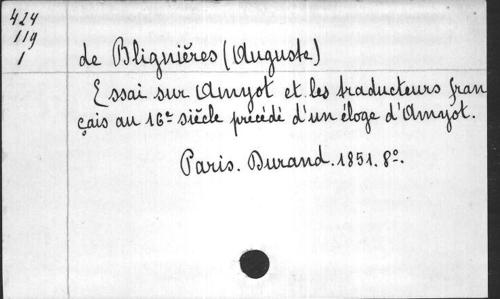 424
119
1
de Blignières (Auguste)
Essai sur Amyot et les traducteurs fran
çais au 16e siècle précédé d'un éloge d'Amyot.
Paris. Durand. 1851. 8°.